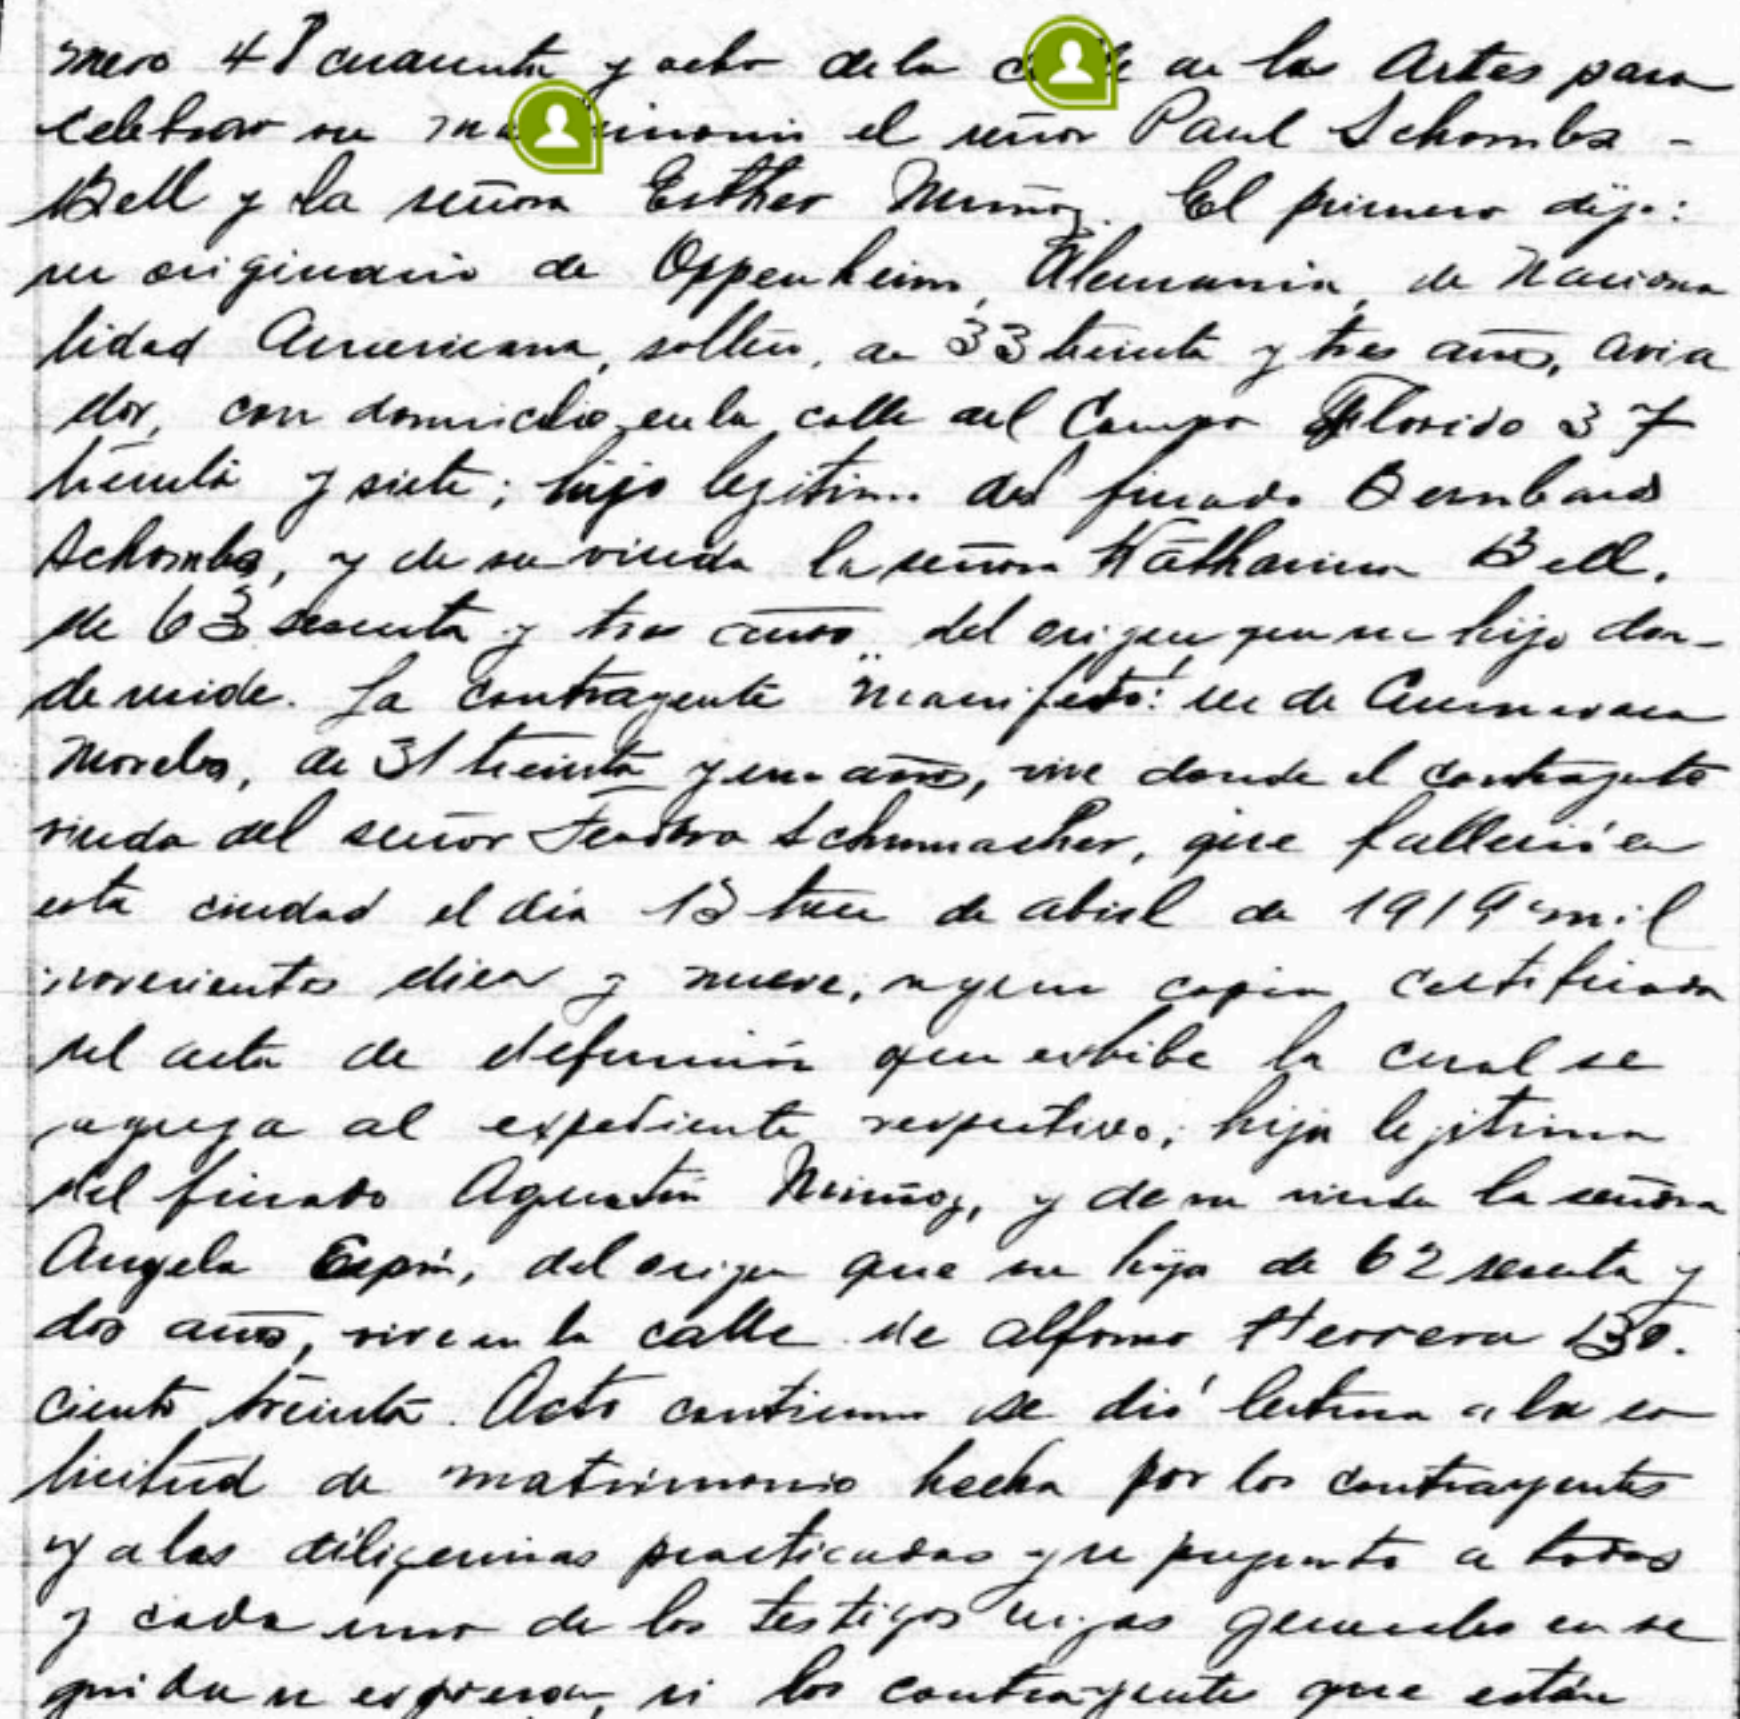 mero 48 cuarenta y ocho de la calle de las Artes para
celebrar su matrimonio el señor Paul Schombs -
Bell y la señora Esther Muñoz. El primero dijo:
ser originario de Oppenheim, Alemania, de Naciona
lidad Americana, soltero, de 33 treinta y tres años, avia
dor, con domicilio en la calle del Campo Florido 37
treinta y siete; hijo legitimo del finado Bernhard
Schombs, y de su viuda la señora Katharina Bell,
de 63 sesenta y tres años, del origen que su hijo don-
de reside. La contrayente manifestó: ser de Cuernavaca
Morelos, de 31 treinta y un años, vive donde el contrayente
viuda del señor Schumacher, que falleció en
esta ciudad el día 13 trece de abril de 1919 mil
novecientos diez y nueve, según copia certificada
del acta de defunción que exhibe la cual se
agrega al expediente respectivo; hija legitima
del finado Agustín Muñoz, y de su viuda la señora
Angela Espín, del origen que su hija de 62 sesenta y
dos años, vive en la calle de Alfonso Herrera 130.
ciento treinta. Acto continuo se dió lectura a la so
licitud de matrimonio hecha por los contrayentes
y a las diligencias practicadas y se preguntó a todos
y cada uno de los testigos cuyas generales en se
guida se expresan, si los contrayentes que están